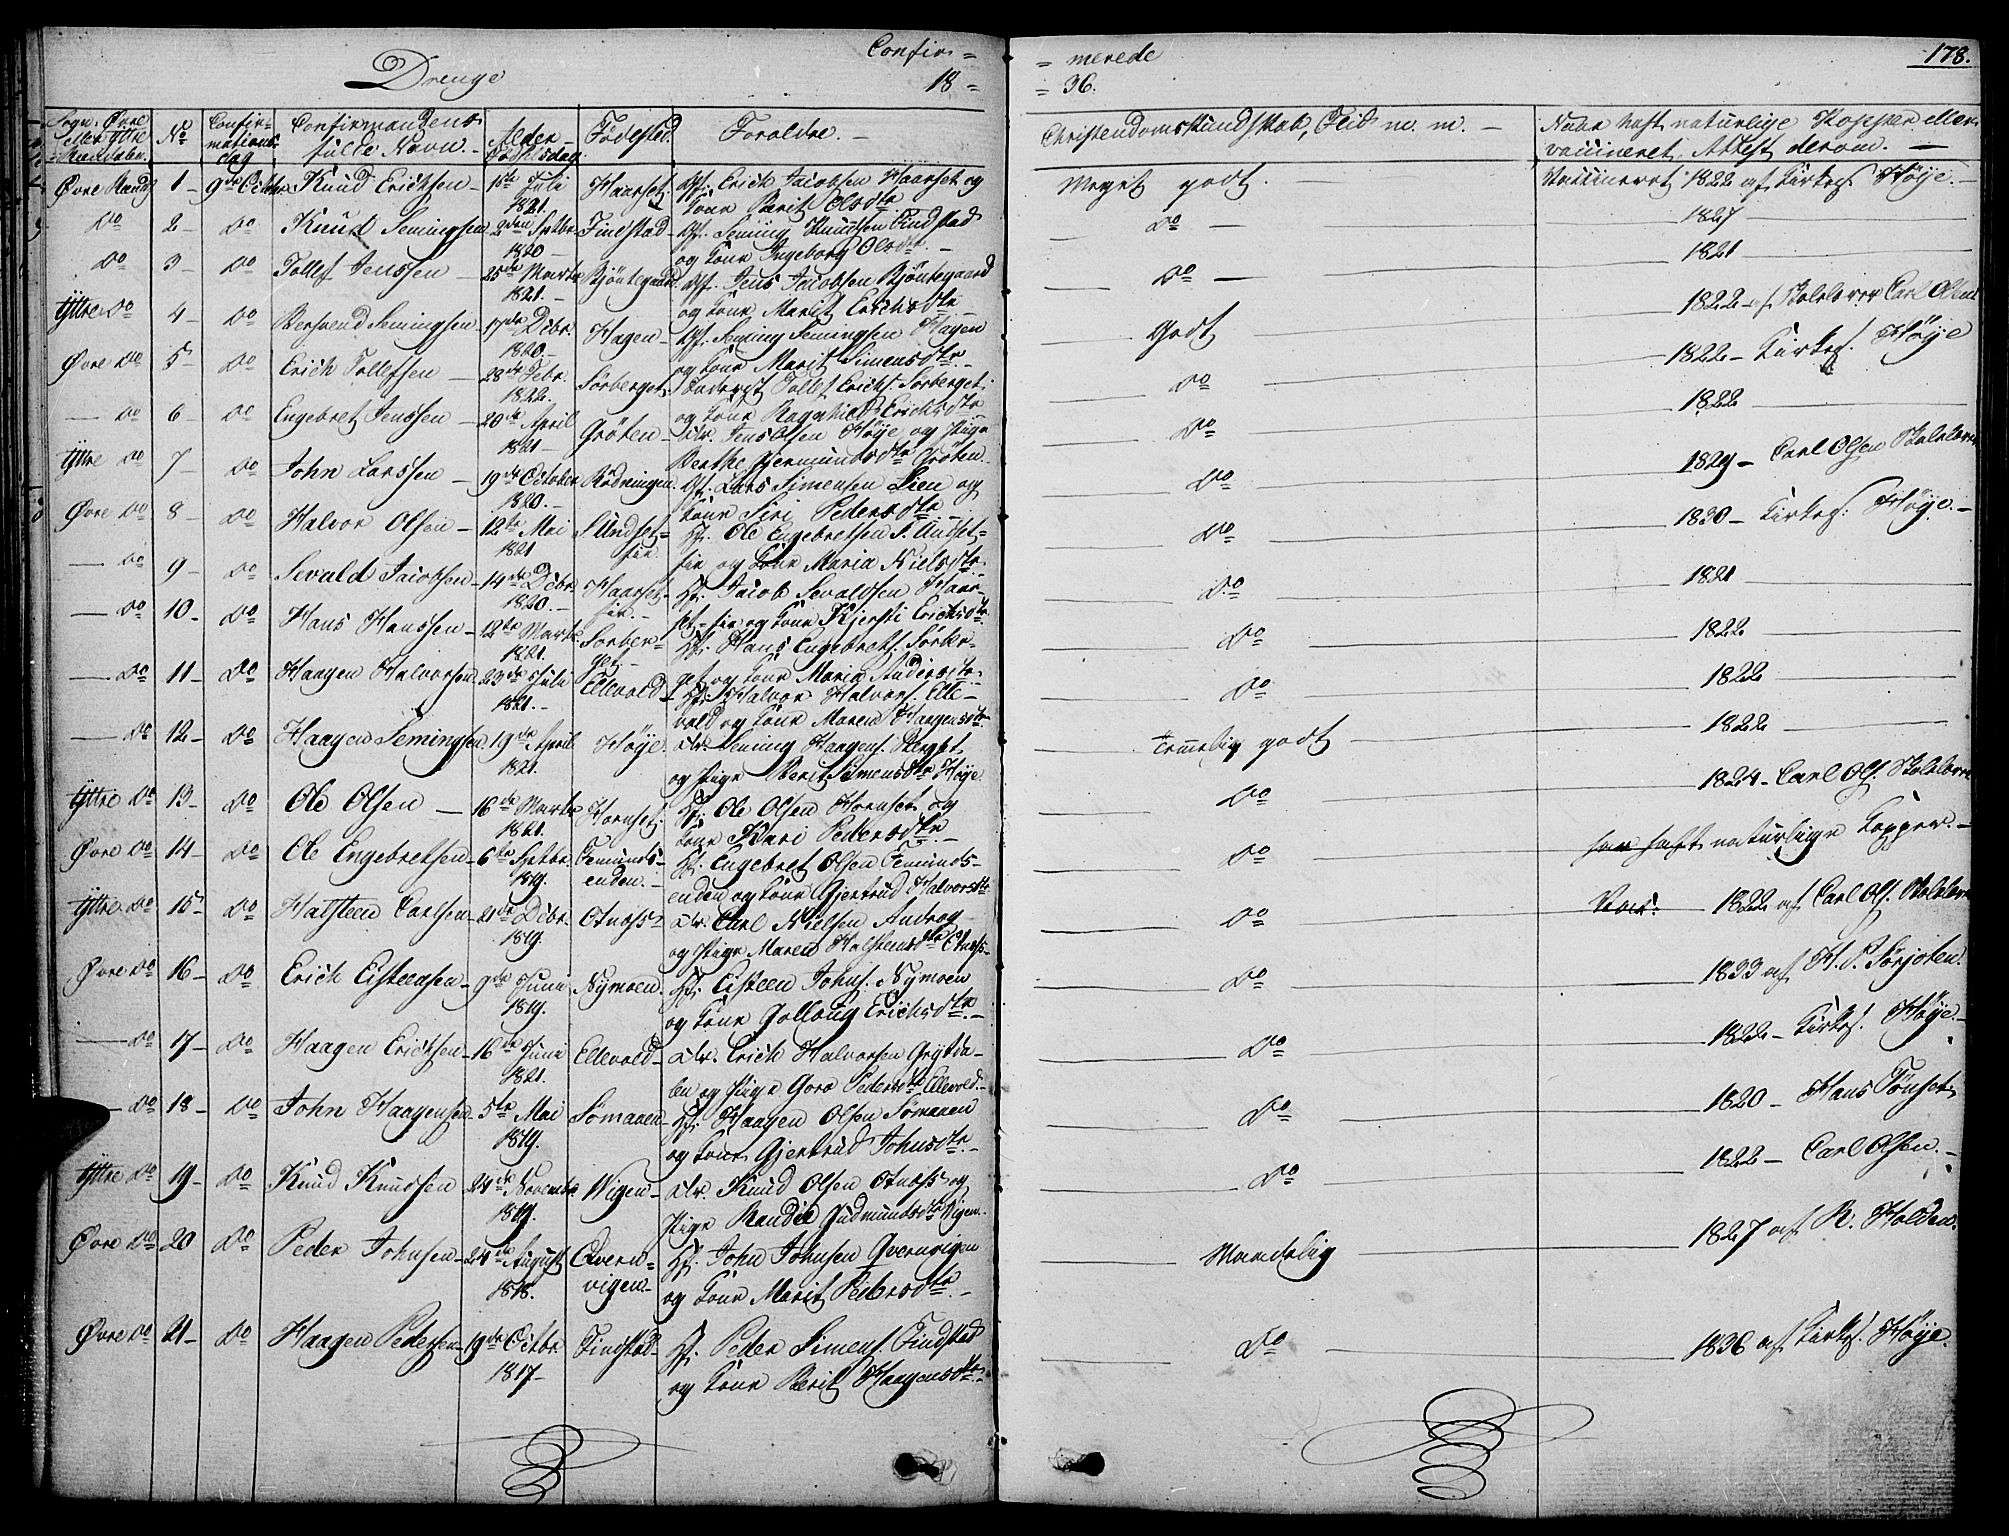 Confir=
= merede
178.
Drenge
18 =
= 36.
Sogn: Øvre eller Ytre Rendalen.
No
Confirmations dag
Confirmandens fulde Navn.
Alder Fødselsdag
Fødested.
Foraldre.
Christendomskundskab, Flid m. m.
Naar haft naturlige Kopper eller vaccineret, Attest derom.
Øvre Rend. 1 9de Octbr. Knud Erichsen 1ste Juli 1821. Haarset. Gf. Erich Jacobsen Haarset og Kone Berit Olsdtr. Meget godt. Vaccineret 1822 af Kirkes. Høye.
Do 2 do Knud Semingsen 2den Setbr. 1820 Findstad Gf. Seming Knudsen Findstad og Kone Ingeborg Olsdtr. do 1827
Do 3 do Tollef Jenssen 25de Marts 1821. Bjöntegaard Gf. Jens Jacobsen Bjöntegaard og Kone Marit Erichsdtr. do 1821
Yttre do 4 do Bersvend Semingsen 17de Decbr. 1820. Hagen Gf. Seming Semingsen Hagen og Kone Marit Simensdtr. Godt 1822 af Skolelærer Carl Olsen
Øvre do 5 do Erich Tollefsen 28de Febr. 1822. Sörberget Tollef Erichs. Sörberget og Kone Ragnhild Erichsdtr. do 1822 Kirkes. Høye
do 6 do Engebret Jenssen 20de April 1821 Gröten Ulv. Jens Olsen Høye og Pige Berthe Gjermundsdtr Gröten. do 1822
Yttre do 7 do John Larssen 19de October 1820. Rödningen. Gf. Lars Simensen Lien og Kone Siri Pedersdtr. do 1829 Carl Olsen Skolelærer
Øvre do 8 do Halvor Olsen 12te Mai 1821 Hf. Ole Engebretsen og Kone Maria Nielsdtr. do 1830 Kirkes: Høye.
do 9 do Sevald Jacobsen 14de Decbr 1820. Haarset- Hf. Jacob Sevaldsen Haarset- og Kone Kjersti Erichsdtr. do 1821
do 10 do Hans Hanssen 12te Marts 1821. Sorberget Hf. Hans Engebrets. Sörberget og Kone Maria Andersdtr. do 1822
do 11 do Haagen Halvorsen 23de Juli 1821. Ellevold Hf. Halvor Halvors. Ellevold og Kone Maren Haagensdtr. do 1822
do 12 do Haagen Semingsen 19de April 1821. Høye Ulv. Seming Haagens. Berget og Pige Berit Simensdtr Høye. Temmelig godt 1822
Yttre do 13 do Ole Olsen 16de Marts 1821. Hornset. Hf. Ole Olsen Hornset og Kone Kari Pedersdtr. do 1824 Carl Ols. Skolelærer
Øvre do 14 do Ole Engebretsen 6te Setbr. 1819. Femunds-enden. Hf. Engebret Olsen Femunds-enden og Kone Gjertrud Halvorsdtr do har haft naturlige Kopper.
Yttre do 15 do Halsteen Carlsen 21de Decbr. 1819. Otnæss Ulv. Carl Nielsen og Pige Maren Halsteensdtr Otnæss. do Vacc: 1822 af Carl Ols. Skolelærer
Øvre do 16 do Erich Eisteensen 9de Juni 1819. Nymoen. Hf. Eisteen Johns. Nymoen og Kone Gollaug Erichsdtr. do 1833 af H. P. Sörjoten.
do 17 do Haagen Erichsen 16de Juni 1821. Ellevold Ulv. Erich Halvorsen Grytdalen og Pige Goro Pedersdtr Ellevold. do 1822 Kirkes. Høye.
do 18 do Johan Haagensen 5te Mai 1819. Sömaaen Hf. Haagen Olsen Sömaaen og Kone Gjertrud Johnsdtr. do 1820 Hans Tönset.
Yttre do 19 do Knud Knudsen 24de Novembr 1819. Wigen Ulv. Knud Olsen Otnæss og Pige Randie Gudmundsdtr Wigen. do 1822 Carl Olsen.
Øvre do 20 do Peder Johnsen 24de August 1818. Qvern-vigen Hf. John Johnsen Qvernvigen og Kone Marit Pedersdtr. Maadelig 1827 af R. Holden.
Øvre do 21 do Haagen Pedersen 19de Octbr 1817 Findstad Hf. Peder Simens. Findstad og Kone Berit Haagensdtr. do 1836 af Kirkes. Høye.